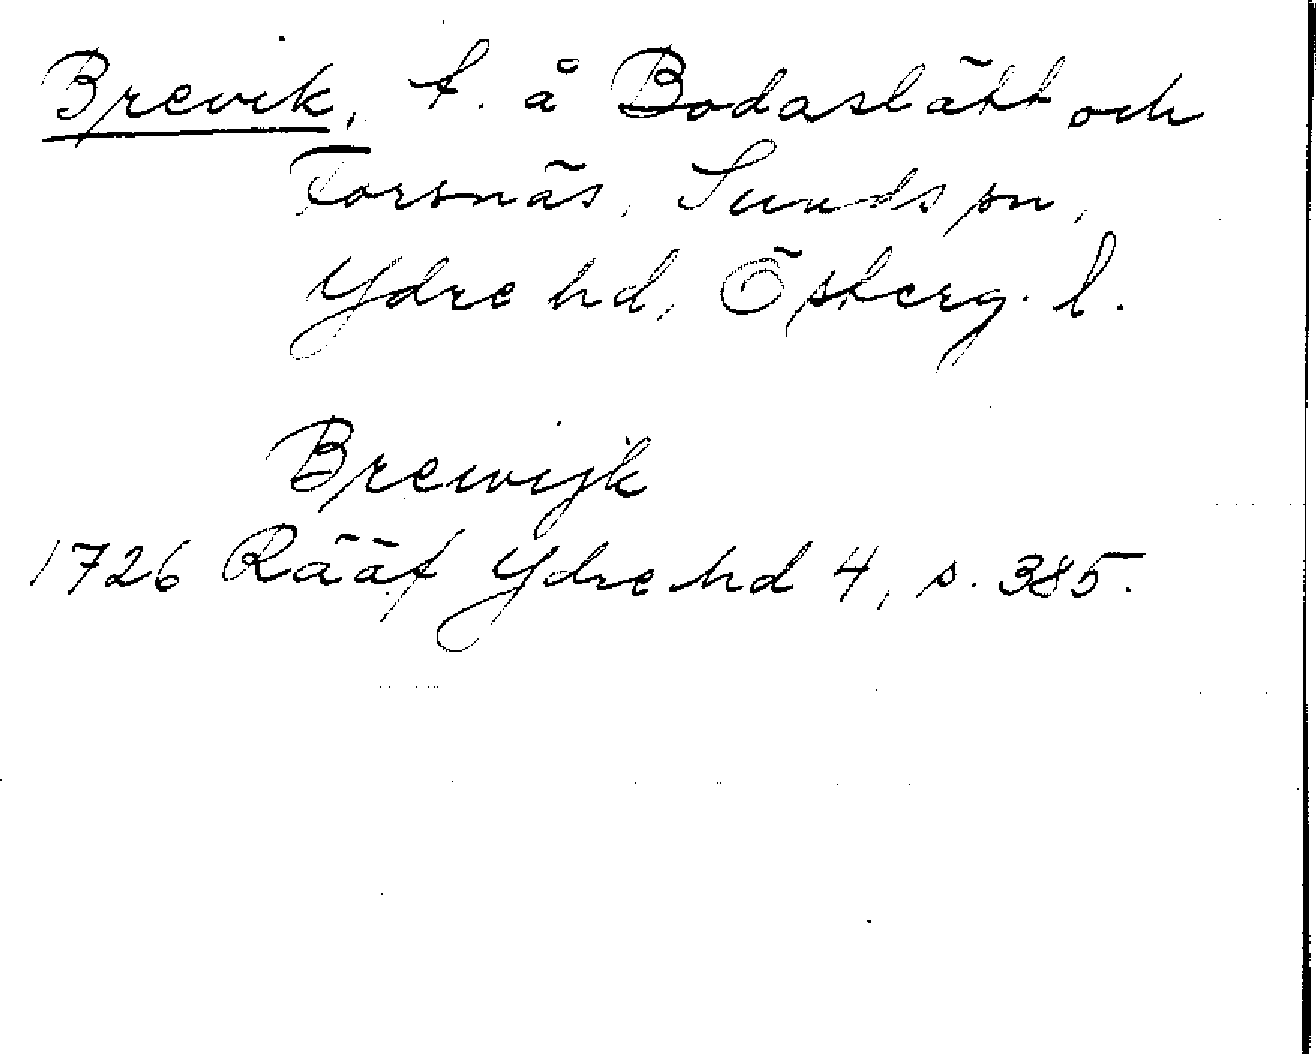 Brevik, t. å Bodaslätt och
Torsnäs, Sunds sn,
Ydre hd, Österg. l.
Brewijk
1726 Rääf Ydre hd 4, s. 385.